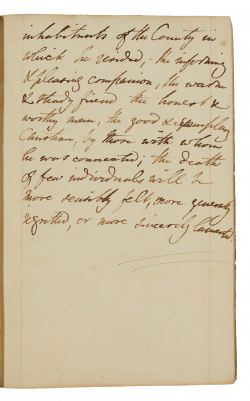 inhabitants of the County in
which he resided; the informing
& pleasing companion, the warm
& steady friend the honest &
worthy man, the good & exemplary
Christian, by those with whom
he was connected; the death
of few individuals will be
more sensibly felt, more generally
regretted, or more sincerely lamented